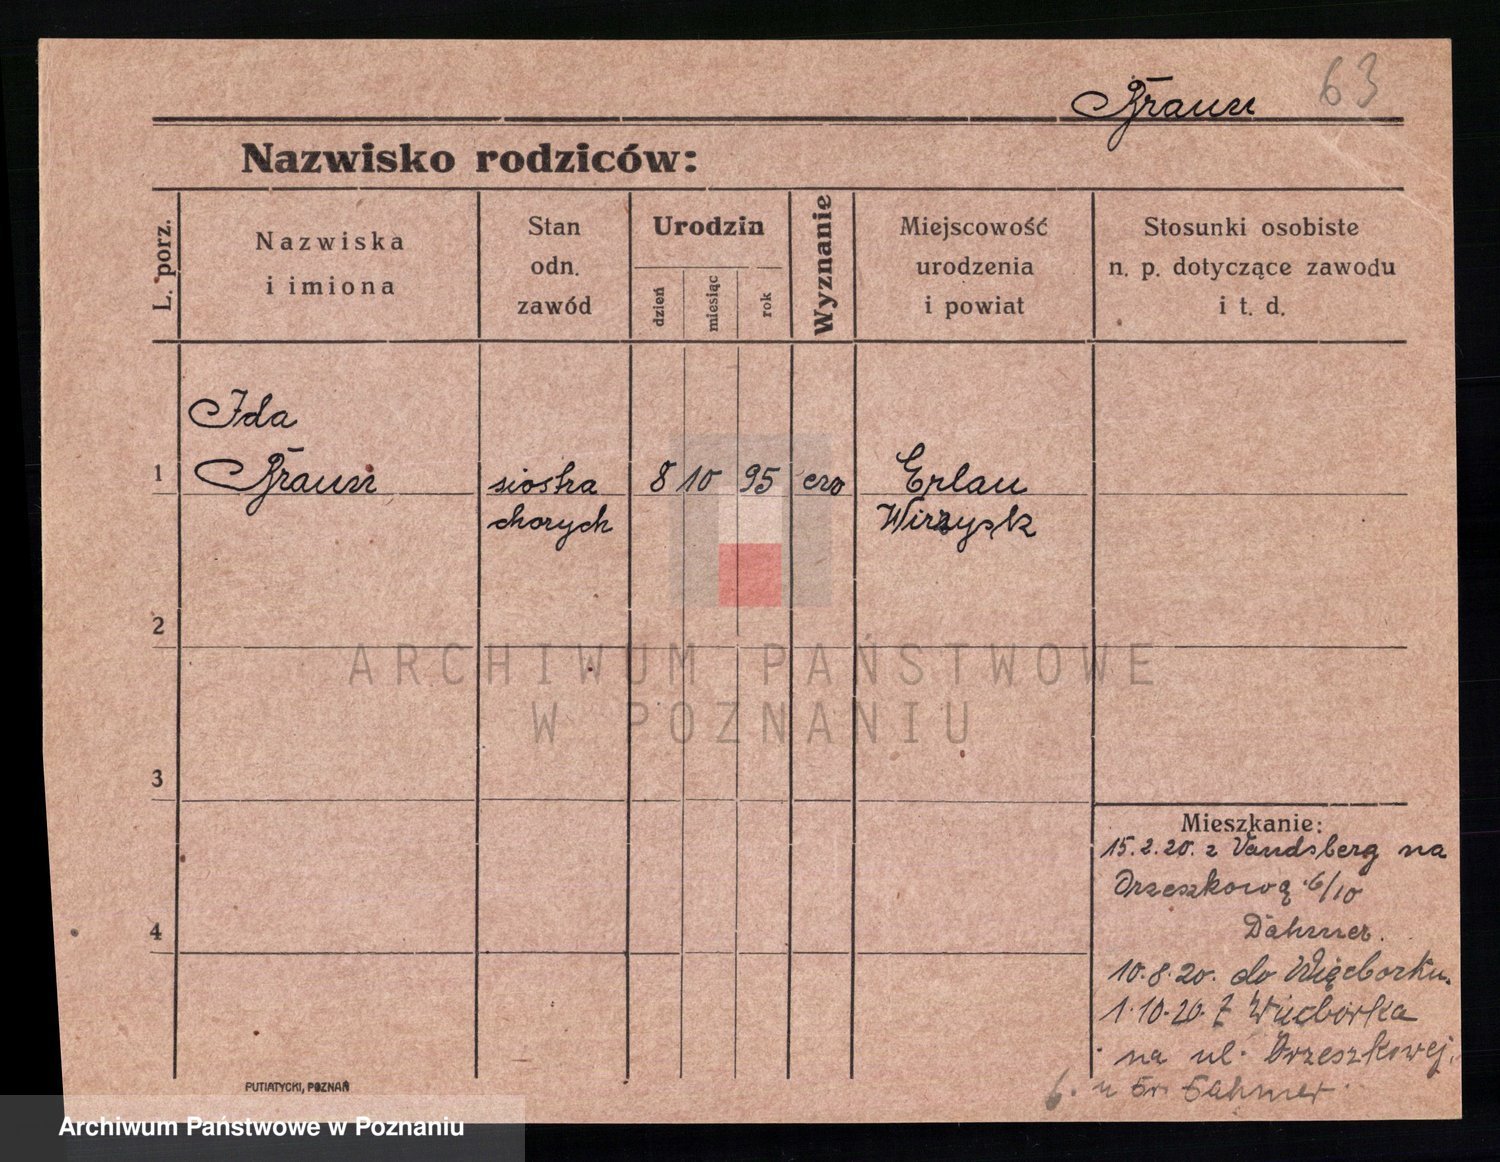 Braun 63
Nazwisko rodziców:
L. porz.
Nazwiska
i imiona
Stan
odn.
zawód
Urodzin
dzień
miesiąc
rok
Wyznanie
Miejscowość
urodzenia
i powiat
Stosunki osobiste
n. p. dotyczące zawodu
i t. d.
Ida
1 Braun siostra 8 10 95 Erlau
chorych Wirzysk
2
ARCHIWUM PAŃSTWOWE
W POZNANIU
3
Mieszkanie:
15.2.20. z Vandsberg na
Orzeszkową 6/10
4 Dahmer.
10.8.20. do Więcborku.
1.10.20. Z Więcborka
na ul. Orzeszkowej
6. u Dahmer.
PUTIATYCKI, POZNAŃ
Archiwum Państwowe w Poznaniu